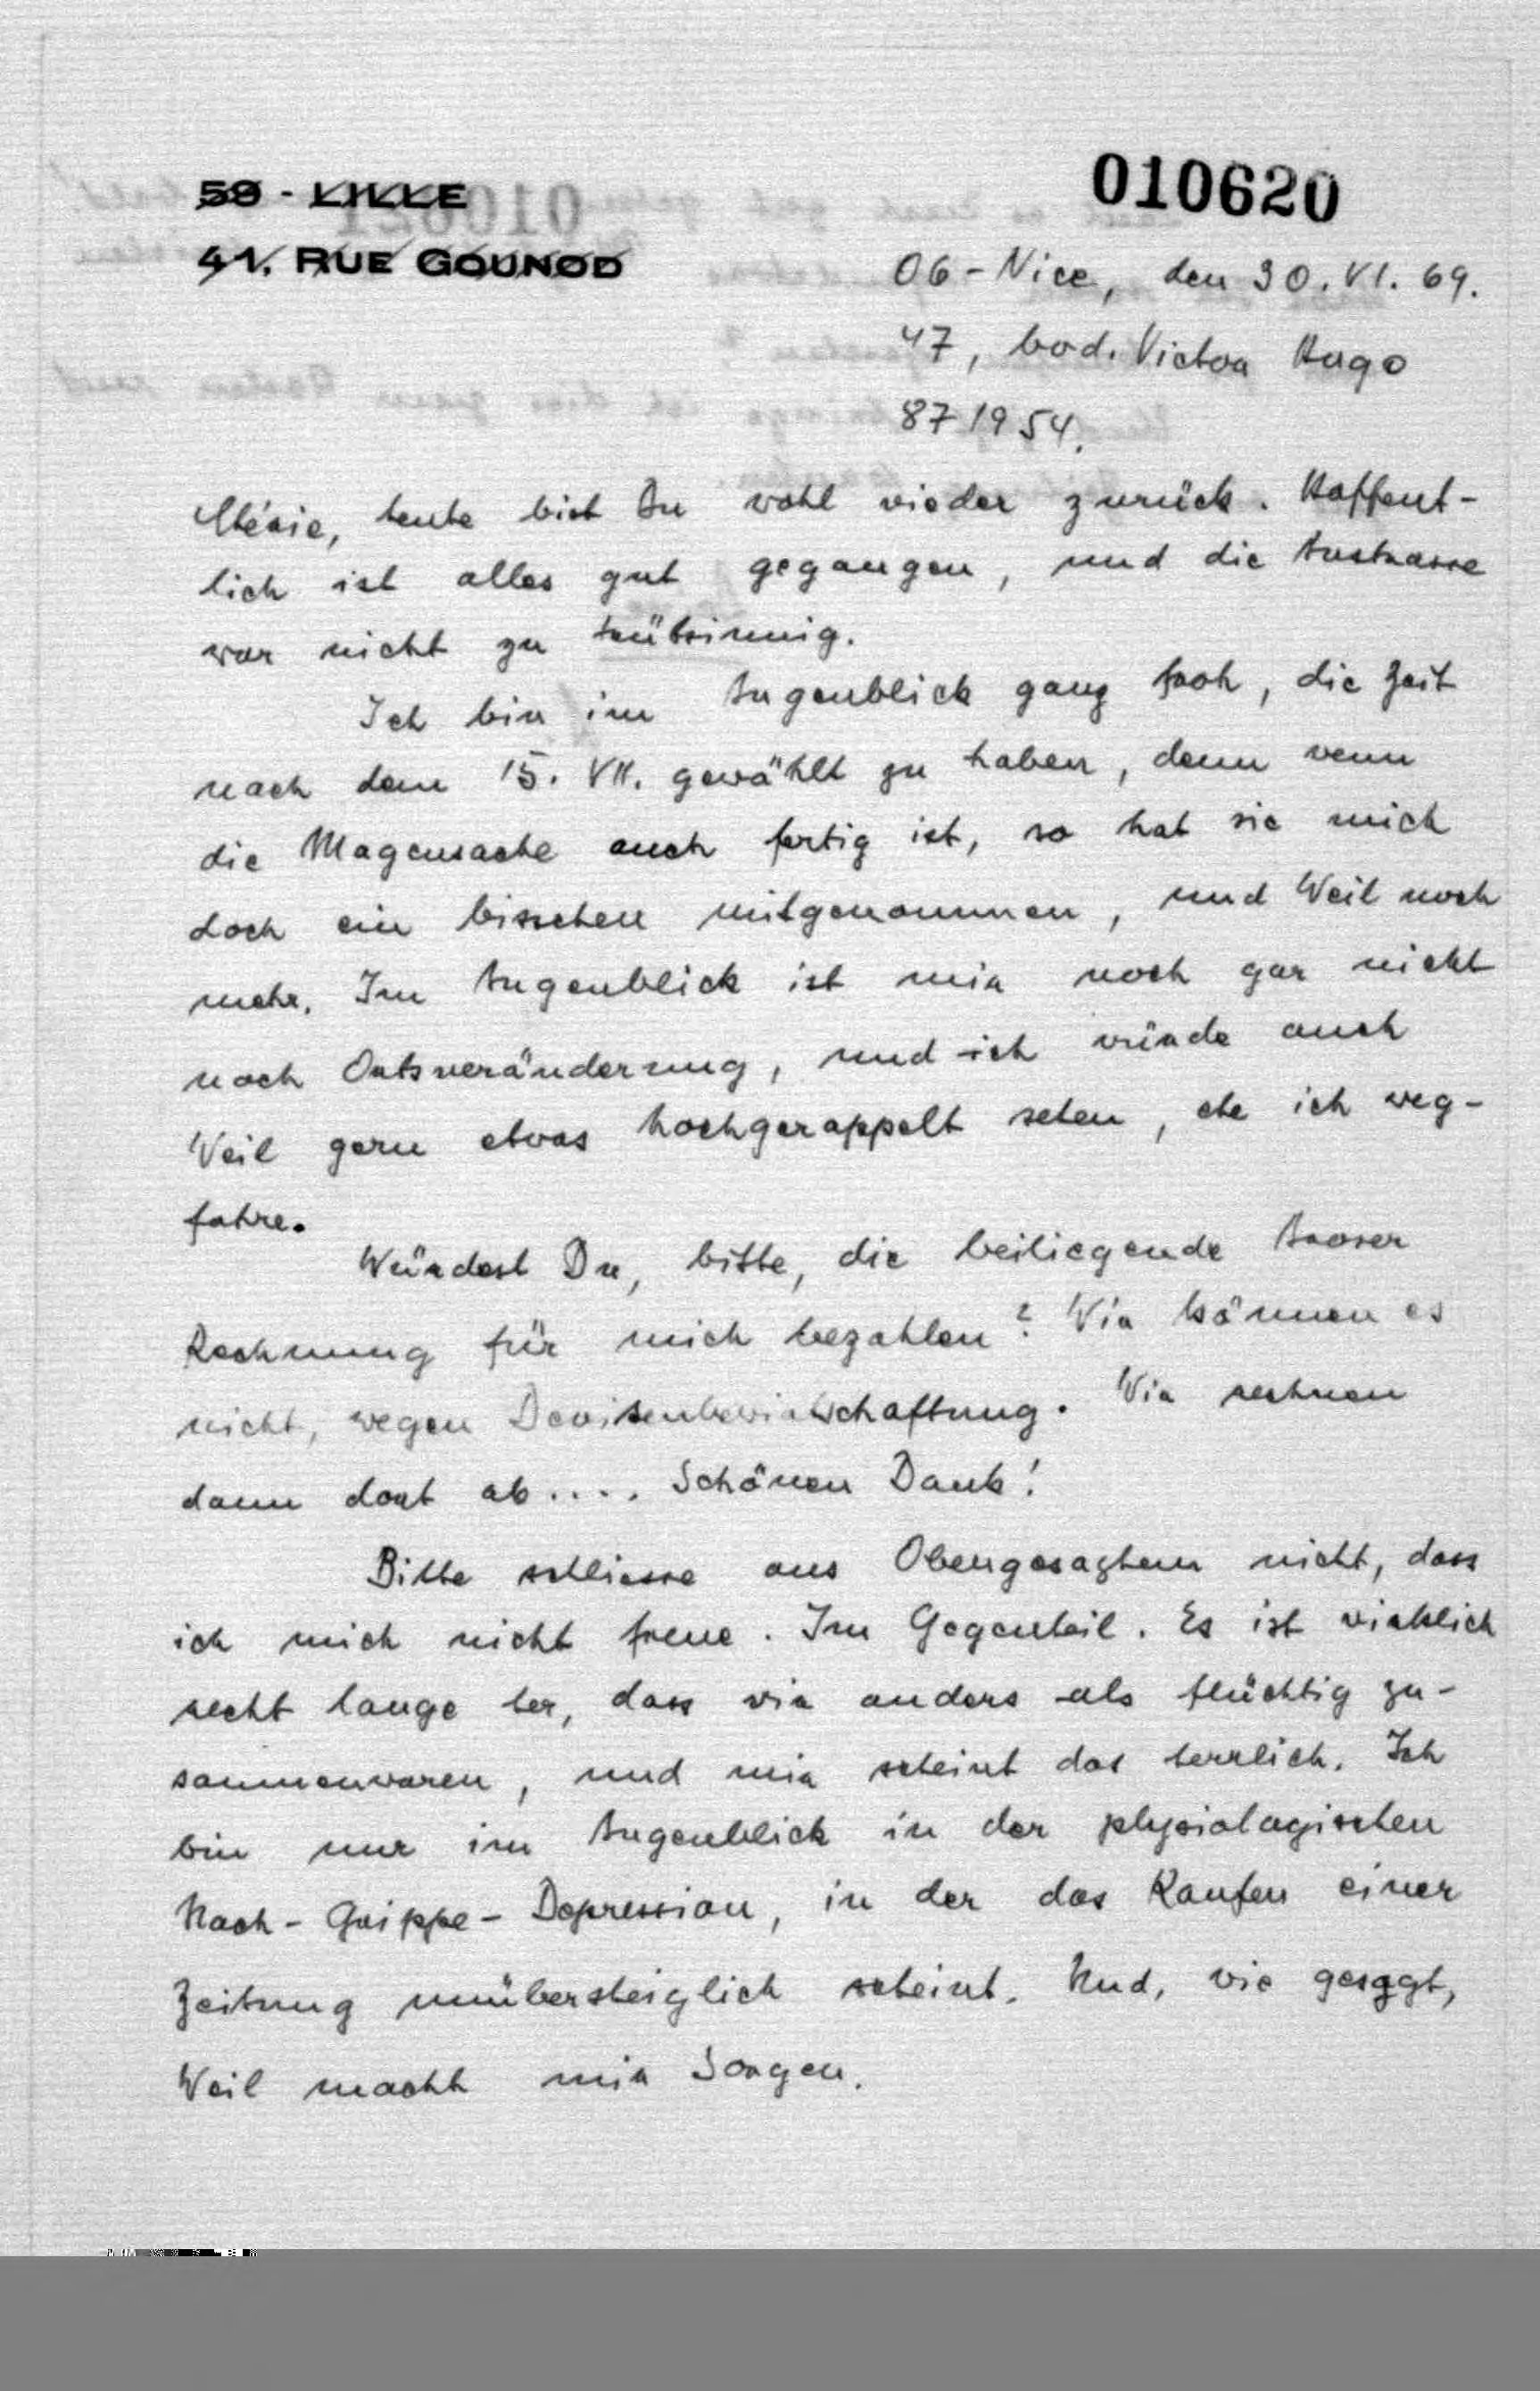 59 - LILLE
010620
41, RUE GOUNOD
06 - Nice, den 30. VI. 69.
47, bvd. Victor Hugo
871954.
Chérie, heute bist Du wohl wieder zurück. Hoffent-
lich ist alles gut gegangen, und die
war nicht zu trübsinnig.
Ich bin im Augenblick ganz froh, die Zeit
nach dem 15. VII. gewählt zu haben, denn wenn
die Magensache auch fertig ist, so hat sie mich
doch ein bisschen mitgenommen, und Weil noch
mehr. Im Augenblick ist mir noch gar nicht
nach Ortsveränderung, und ich würde auch
Weil gern etwas hochgerappelt sehen, ehe ich weg-
fahre.
Würdest Du, bitte, die beiliegende
Rechnung für mich bezahlen? Wir können es
nicht, wegen Devisenbewirtschaftung. Wir rechnen
dann dort ab.... Schönen Dank!
Bitte schliesse aus Obengesagtem nicht, dass
ich mich nicht freue. Im Gegenteil. Es ist wirklich
recht lange her, dass wir anders als flüchtig zu-
sammenwaren, und mir scheint das herrlich. Ich
bin nur im Augenblick in der physiologischen
Nach-Grippe-Depression, in der das Kaufen einer
Zeitung unübersteiglich scheint. Und, wie gesagt,
Weil macht mir Sorgen.